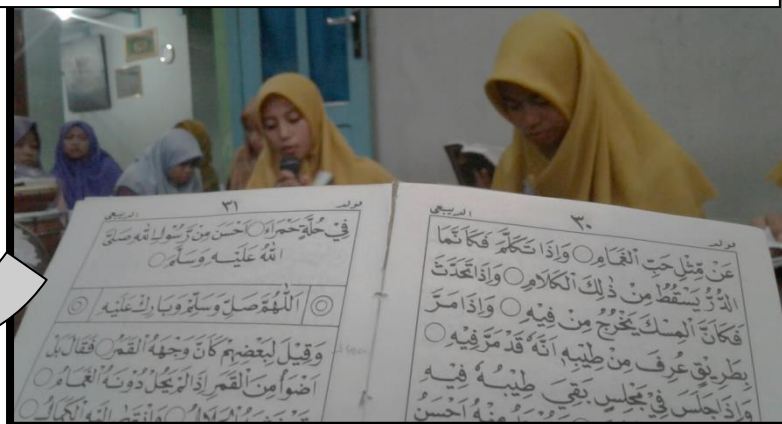 مولد ٣٠ الديبعي
عَنْ مِّثْلِ حَبِّ الْغَمَامِ ○ وَاِذَا تَكَلَّمَ فَكَاَنَّمَا
الدُّرُّ يَسْقُطُ مِنْ ذٰلِكَ الْكَلَامِ ○ وَاِذَا تَحَدَّثَ
فَكَاَنَّ الْمِسْكَ يَخْرُجُ مِنْ فِيْهِ ○ وَاِذَا مَرَّ
بِطَرِيْقٍ عُرِفَ مِنْ طِيْبِهِ اَنَّهُ قَدْ مَرَّ فِيْهِ ○
وَاِذَا جَلَسَ فِيْ مَجْلِسٍ بَقِيَ طِيْبُهُ فِيْهِ
مِنْهُ اَحْسَنُ
مولد ٣١ الديبعي
فِيْ حُلَّةٍ حَمْرَاءَ ○ اَحْسَنَ مِنْ رَّسُوْلِ اللهِ صَلَّى
اللهُ عَلَيْهِ وَسَلَّمَ ○
اَللّٰهُمَّ صَلِّ وَسَلِّمْ وَبَارِكْ عَلَيْهِ
وَقِيْلَ لِبَعْضِهِمْ كَاَنَّ وَجْهَهُ الْقَمَرُ ○ فَقَالَ بَلْ
اَضْوَأُ مِنَ الْقَمَرِ اِذَا لَمْ يَحُلْ دُوْنَهُ الْغَمَامُ ○